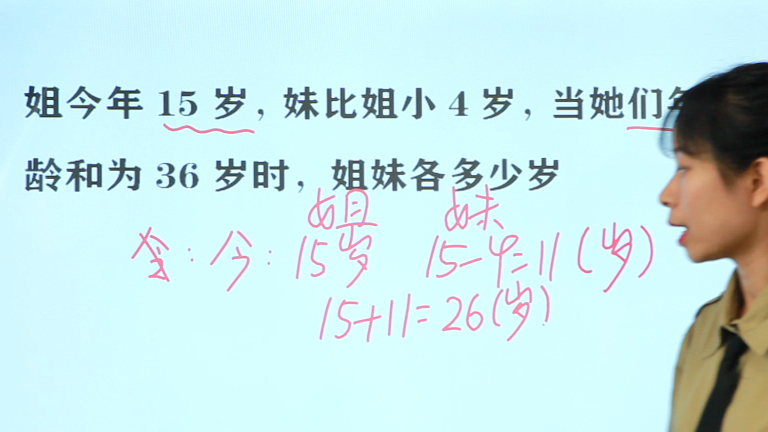 姐今年 15 岁，妹比姐小 4 岁，当她们年
龄和为 36 岁时，姐妹各多少岁
姐 妹
: 今: 15岁 15-4=11(岁)
15+11=26(岁)